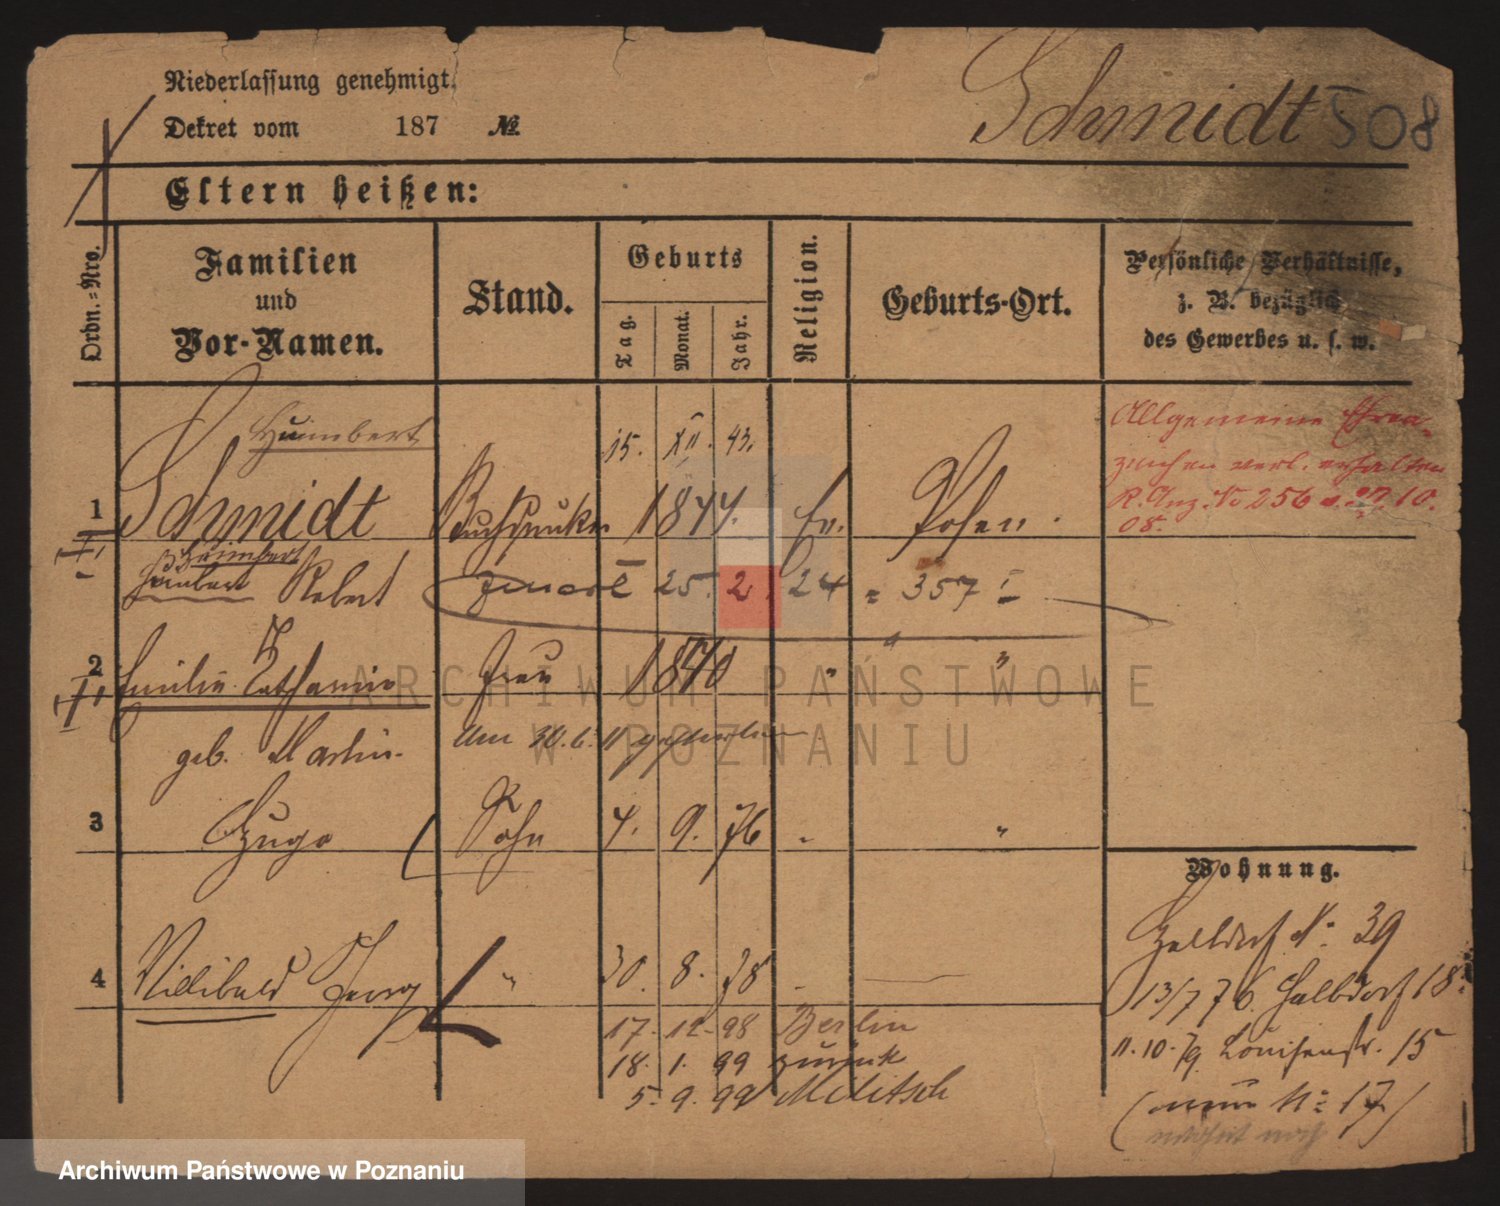 Niederlassung genehmigt.
Dekret vom 187 №
Schmidt 508
Eltern heißen:
Ordn.=Nro.
Familien
und
Vor-Namen.
Stand.
Geburts
Tag.
Monat.
Jahr.
Religion.
Geburts-Ort.
Persönliche Verhältnisse,
z. B. bezüglich
des Gewerbes u. s. w.
Humbert
15. XII. 43.
Allgemeine Ehren-
zeichen verl. erhalten
R. Anz. No 256 10.
08.
1 Schmidt Buchdrucker 1844. Ev. Posen.
Robert zmarł 25. 2. 24 = 357 I
2 Emilie Catharine Frau 1840 " "
geb. Martin. Am 30. 6. 11 gestorben
3 Hugo Sohn 4. 9. 76 "
Wohnung.
4 Willibald Georg " 30. 8. 78
Halbdorf No 39
13/7 76. Halbdorf 18.
11. 10. 79. Louisenstr. 15
(nun No 17)
17. 12. 98 Berlin
18. 1. 99 zurück
5. 9. 99 Militsch
ARCHIWUM PAŃSTWOWE
W POZNANIU
Archiwum Państwowe w Poznaniu